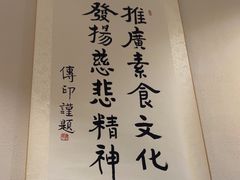 推廣素食文化
發揚慈悲精神
傳印謹題